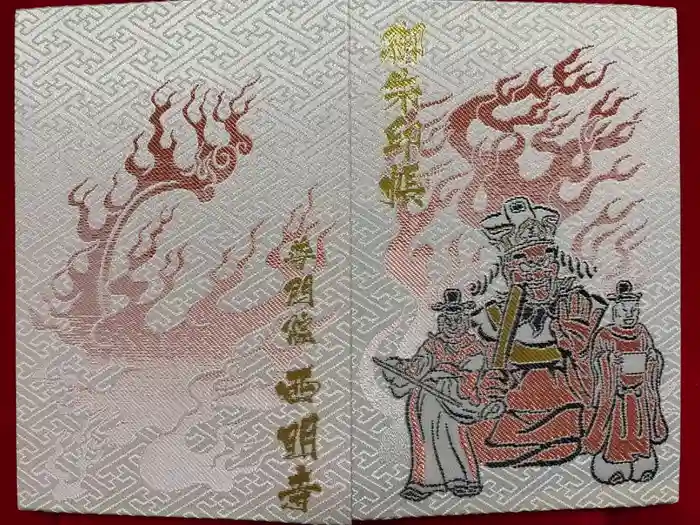 御朱印帳
普門院 西明寺